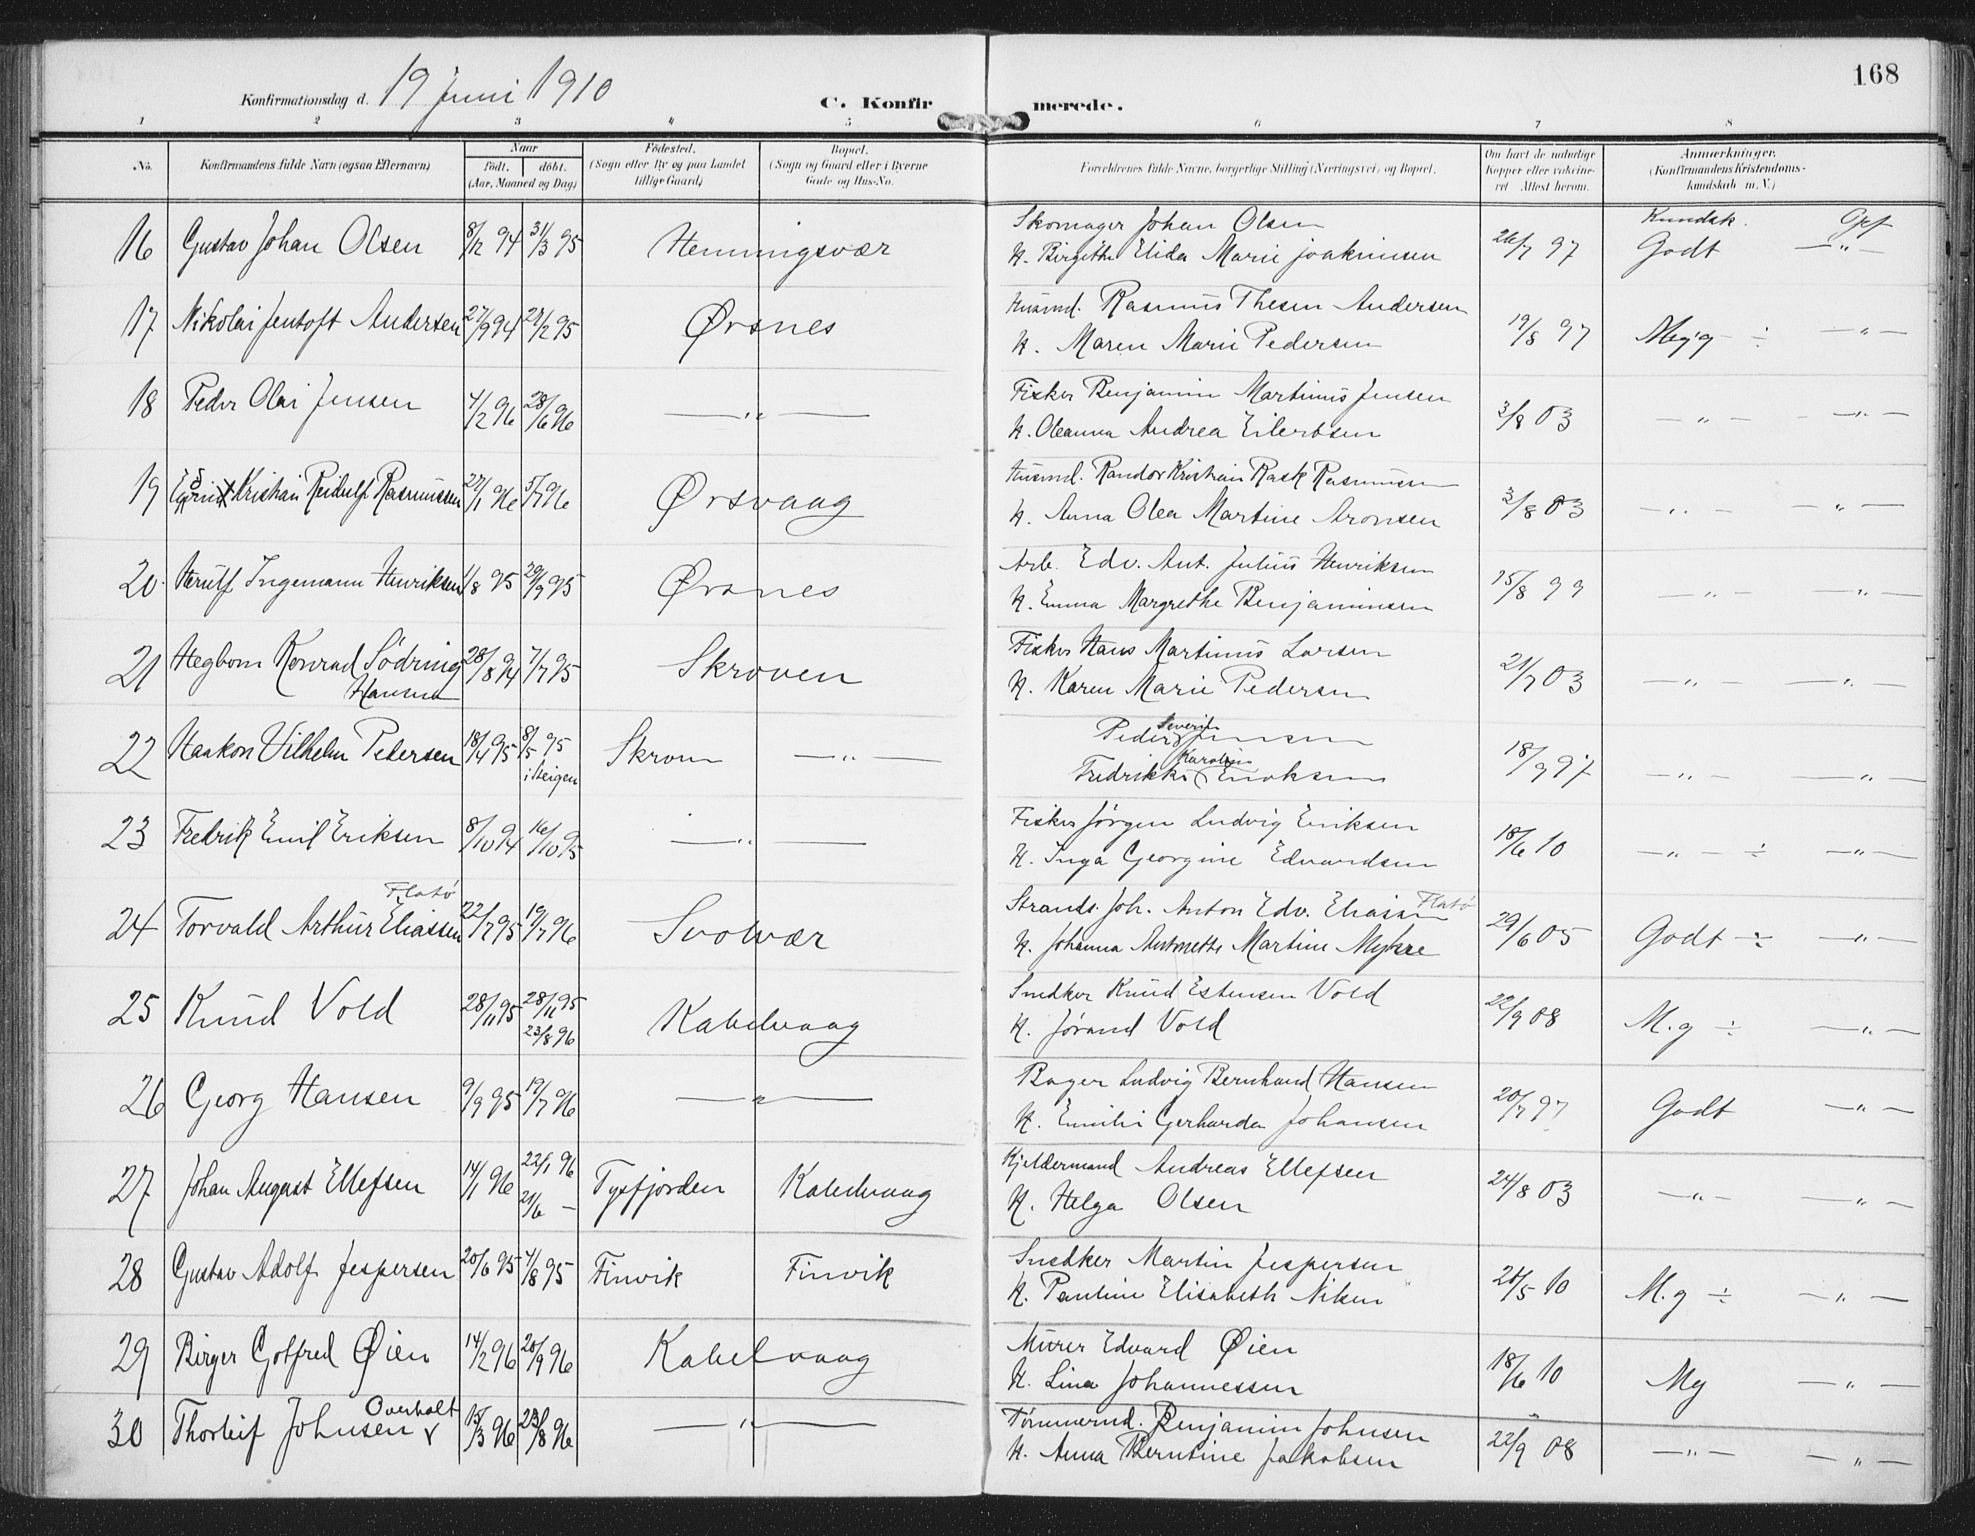 168
Konfirmationsdag d. 19 Juni 1910
C. Konfirmerede.
1 2 3 4 5 6 7 8
No. Konfirmandens fulde Navn (ogsaa Efternavn) Naar født. døbt. (Aar, Maaned og Dag) Fødested. (Sogn eller By og paa Landet tillige Gaard) Bopæl. (Sogn og Gaard eller i Byerne Gade og Hus-No. Forældrenes fulde Navne, borgerlige Stilling (Næringsvei) og Bopæl. Om havt de naturlige Kopper eller vaccineret Attest herom. Anmærkninger. (Konfirmandens Kristendomskundskab m. V.)
Kundsk. Opf
16 Gustav Johan Olsen 8/12 94 31/3 95 Henningsvær Skomager Johan Olsen
H. Birgithe Elida Marie Joakimsen 26/7 97 Godt —"—
17 Nikolai Jentoft Andersen 27/9 94 24/2 95 Ørsnes Husmd. Rasmus Thesen Andersen
H. Maren Marie Pedersen 19/8 97 Meg g ÷ —"—
18 Peder Olai Jensen 4/2 96 28/6 96 —"— Fisker Benjamin Martinus Jensen
H. Oleanna Andrea Eilertsen 3/8 03 —"— —"—
19 Kristian Reidulf Rasmussen 27/1 96 5/7 96 Ørsvaag Husmd. Randor Kristian Rask Rasmussen
H. Anna Olea Martine Aronsen 3/8 03 —"— —"—
20. Herulf Ingemann Henriksen 1/8 95 29/9 95 Ørsnes Arb. Edv. Ant. Julius Henriksen
H. Emma Margrethe Benjaminsen 15/8 99 —"— —"—
21 Hegbom Konrad Södring Hansen 28/8 94 7/7 95 Skroven Fisker Hans Martinus Larsen
H. Karen Marie Pedersen 21/7 03 —"— —"—
22 Haakon Vilhelm Pedersen 18/4 95 8/5 95 i Steigen Skroven —"— Peder Severin Jensen
Fredrikke Karoline Enoksen 18/9 97 —"— —"—
23 Fredrik Emil Eriksen 8/10 94 16/10 95 —"— Fisker Jørgen Ludvig Eriksen
H. Inga Georgine Edvardsen 18/6 10 —"— ÷ —"—
24 Torvald Arthur Eliassen Flatø 22/7 95 19/7 96 Svolvær Strands. Joh. Anton Edv. Eliassen Flatø
H. Johanna Antonette Martine Myhre 29/6 05 Godt ÷ —"—
25 Knud Vold 28/11 95 28/11 95 23/8 96 Kabelvaag Snedker Knud Estensen Vold
H. Jørand Vold 22/9 08 M.g ÷ —"—
26 Georg Hansen 9/9 95 19/7 96 —"— Bager Ludvig Bernhard Hansen
H. Emilie Gerharda Johansen 20/7 97 Godt —"—
27 Johan August Ellefsen 14/1 96 22/1 96 21/6 — Tysfjorden Kabelvaag Kjeldermand Andreas Ellefsen
H. Helga Olsen 24/8 03 —"— —"—
28 Gustav Adolf Jespersen 20/6 95 4/8 95 Finvik Finvik Snedker Martin Jespersen
H. Pauline Elisabeth Nilsen 28/5 10 M.g ÷ —"—
29 Birger Gotfred Øien 14/2 96 20/9 96 Kabelvaag Murer Edvard Øien
H. Lina Johannessen 18/6 10 Mg —"—
30 Thorleif Johnsen Overholt 15/3 96 23/8 96 —"— Tømmermd. Benjamin Johnsen
H. Anna Berntine Jakobsen 22/9 08 —"— —"—